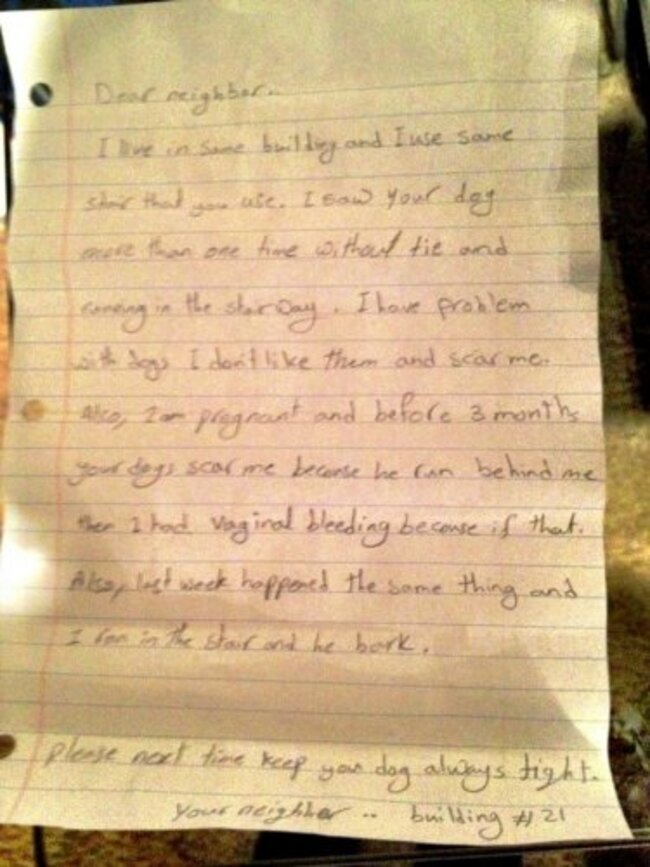 Dear neighbor..
I live in same building and I use same
stair that you use. I saw your dog
more than one time without tie and
running in the stairway. I have problem
with dogs I don't like them and scar me.
Also, I am pregnant and before 3 months
your dogs scar me becouse he run behind me
then I had vaginal bleeding becouse if that.
Also, last week happened the same thing and
I ran in the stair and he bark.
please next time keep your dog always tight.
your neighber .. building #21